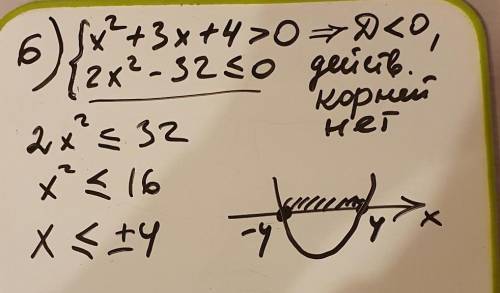 б) { x² + 3x + 4 > 0 ⇒ D < 0,
2x² - 32 ≤ 0 действ.
корней
нет
2x² ≤ 32
x² ≤ 16
x ≤ ±4
-4 4 x